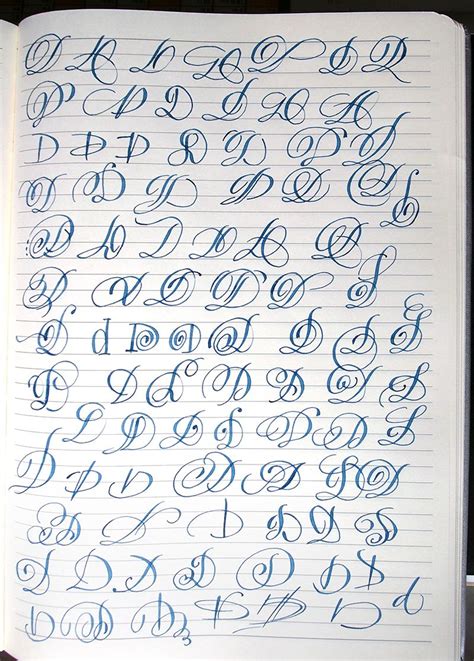 D D D D D D D
D D D D D D D
D D D D D D D
D D D D D D D
D D D D D D
D D D D D D
D d D D D D D D D
D D D D D D D D
D D D D D D D D
D D D D D D D
D D D D D D D
D D D D D D D D
D D D D D D D d